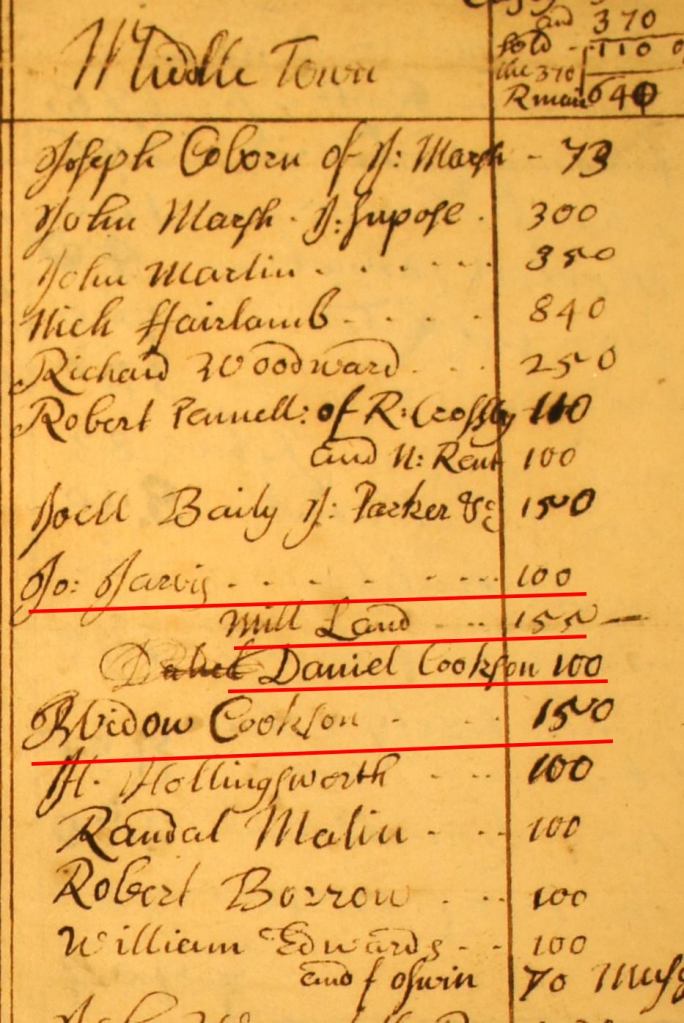 and 370
Sold - 110
the 370
Rmain 640
Middle Town
Joseph Coborn of J: Marsh - 73
John Marsh. J: Supose . 300
John Martin . . . . . . 350
Nich ffairlamb . . . . 840
Richard Woodward . . . 250
Robert Pennell: of R: Crossby 110
and N: Rent 100
Joell Baily J: Parker &c 150
Jo: Jarvis . . . . . . . 100
Mill Land . . . 155 —
Daniel Cookson 100
Widow Cookson . . . 150
H. Hollingsworth . . . 100
Randal Malin . . . 100
Robert Borrow . . . 100
William Edwards - - 100
and f oswin 70